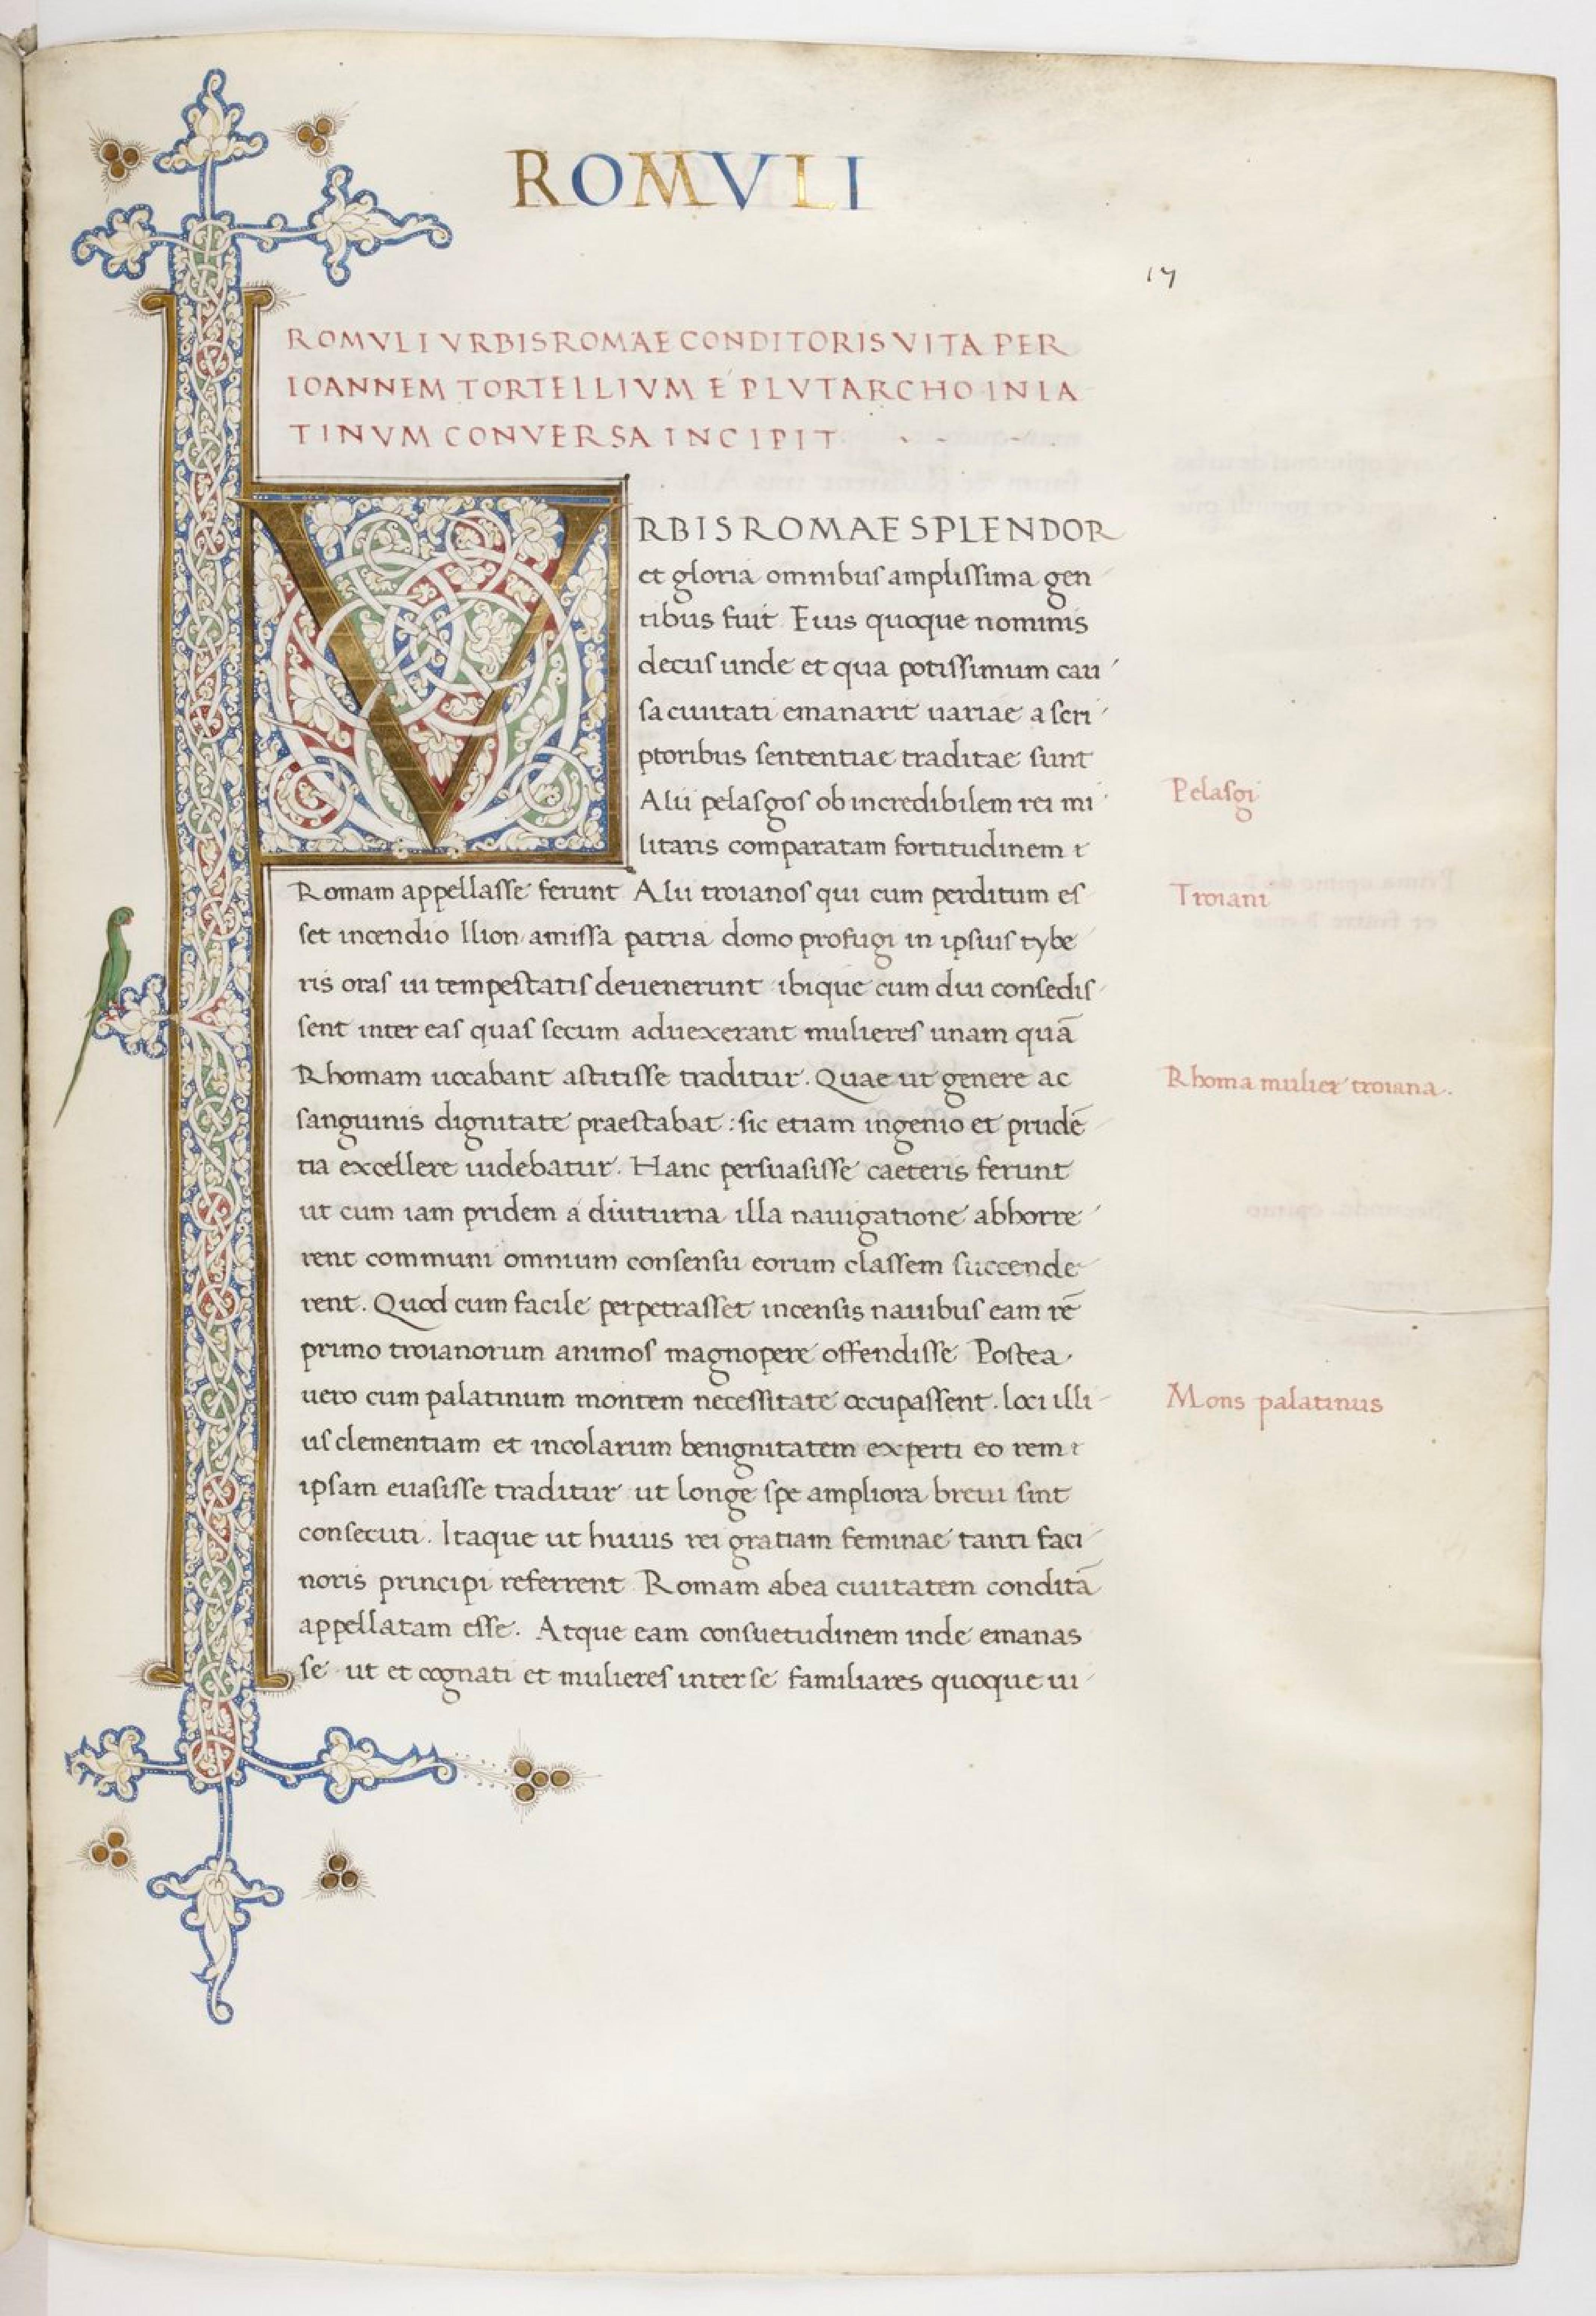 ROMVLI
17
ROMVLI VRBIS ROMAE CONDITORIS VITA PER
IOANNEM TORTELLIVM E PLVTARCHO IN LA
TINVM CONVERSA INCIPIT
VRBIS ROMAE SPLENDOR
et gloria omnibus amplissima gen
tibus fuit Eius quoque nominis
decus unde et qua potissimum cau
sa ciuitati emanarit uariae a scri
ptoribus sententiae traditae sunt
Alii pelasgos ob incredibilem rei mi
Pelasgi
litaris comparatam fortitudinem
Romam appellasse ferunt Alii troianos qui cum perditum es
Troiani
set incendio Ilion amissa patria domo profugi in ipsius tybe
ris oras ui tempestatis deuenerunt ibique cum diu consedis
sent inter eas quas secum aduexerant mulieres unam quā
Rhomam uocabant astitisse traditur. Quae ut genere ac
Rhoma mulier troiana.
sanguinis dignitate praestabat : sic etiam ingenio et prudē
tia excellere uidebatur. Hanc persuasisse caeteris ferunt
ut cum iam pridem a diuturna illa nauigatione abhorre
rent communi omnium consensu eorum classem succende
rent. Quod cum facile perpetrasset incensis nauibus eam rē
primo troianorum animos magnopere offendisse Postea
uero cum palatinum montem necessitate occupassent. loci illi
Mons palatinus
us clementiam et incolarum benignitatem experti eo rem
ipsam euasisse traditur ut longe spe ampliora breui sint
consecuti. Itaque ut huius rei gratiam feminae tanti faci
noris principi referrent Romam ab ea ciuitatem conditā
appellatam esse. Atque eam consuetudinem inde emanas
se ut et cognati et mulieres inter se familiares quoque ui